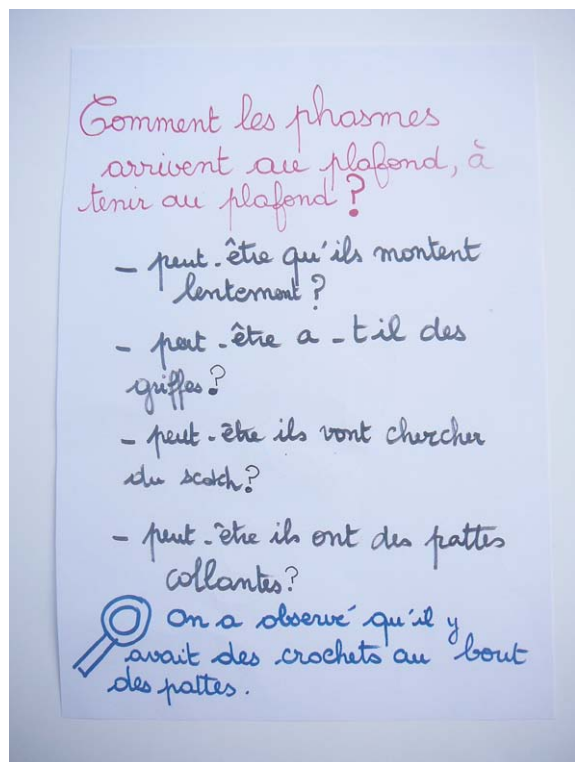 Comment les phasmes
arrivent au plafond, à
tenir au plafond ?
- peut-être qu'ils montent
lentement ?
- peut-être a-t-il des
griffes ?
- peut-être ils vont chercher
du scotch ?
- peut-être ils ont des pattes
collantes ?
On a observé qu'il y
avait des crochets au bout
des pattes.